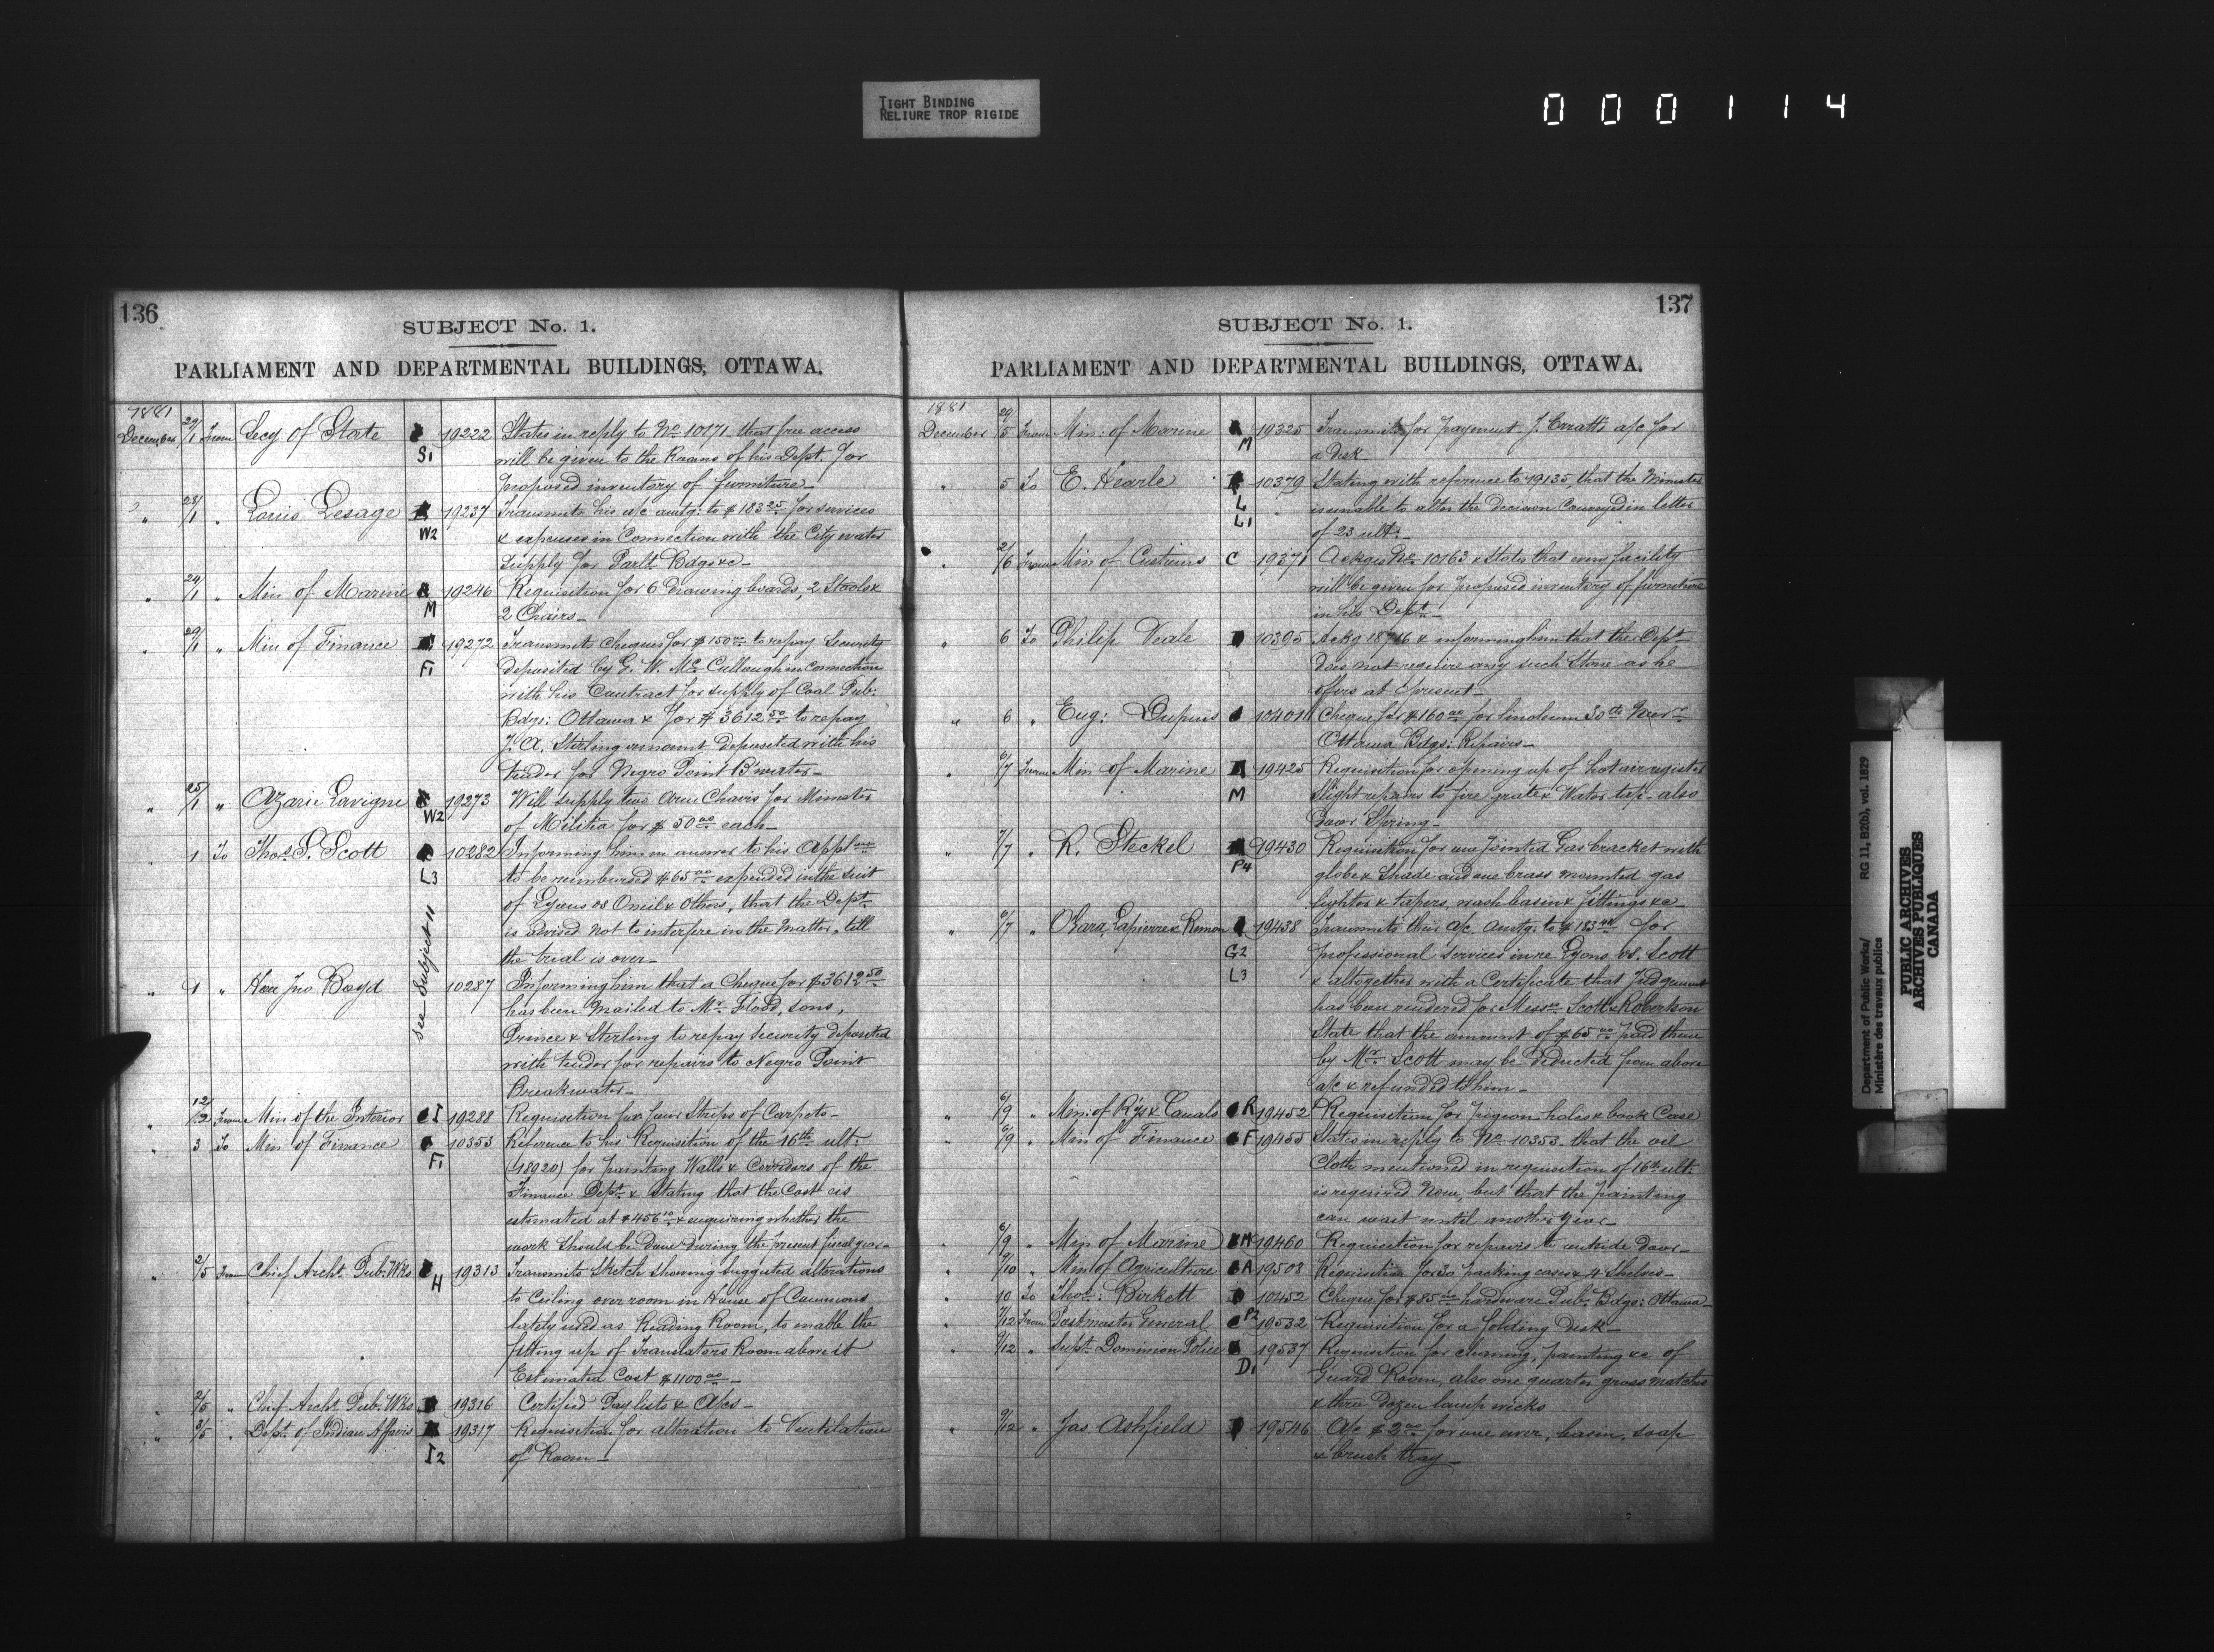 TIGHT BINDING
RELIURE TROP RIGIDE
000114
136
SUBJECT No. 1.
PARLIAMENT AND DEPARTMENTAL BUILDINGS, OTTAWA.
1881
December 29/1 From Secy of State S1 19222 States in reply to No 10171 that free access
will be given to the Rooms of his Dept. for
proposed inventory of furniture
" 28/1 " Louis Lesage W2 19237 Transmits his a/c amtg: to $183 25 for services
& expenses in Connection with the City water
Supply for Parlt Bdgs &c
" 24/1 " Min of Marine M 19246 Requisition for 6 Drawing boards, 2 Stools &
2 Chairs
" 29/1 " Min of Finance F1 19272 Transmits Cheques for $150 00 to repay Security
deposited by G. W. McCullough in connection
with his Contract for supply of Coal Pub:
Bdgs: Ottawa & for $3612 50 to repay
J. A. Sterling amount deposited with his
tender for Negro Point B'water
" 25/1 " Azarie Lavigne W2 19273 Will supply two Arm Chairs for Minister
of Militia for $50 00 each
" 1 To Thos. S. Scott L3 10282 Informing him in answer to his Appl
to be reimbursed $65 00 expended in the suit
of Lyons vs Oneil & Others, that the Dept
is advised not to interfere in the Matter, till
the trial is over
See Subject 11
" 1 " Hon Jno Boyd 10287 Informing him that a Cheque for $3612 50
has been mailed to Mr. Flood, sons,
Prince & Sterling to repay security deposited
with tender for repairs to Negro Point
Breakwater
" 12/2 From Min of the Interior I 19288 Requisition for four Strips of Carpets
" 3 To Min of Finance F1 10353 Reference to his Requisition of the 16th ult:
(18920) for painting Walls & Corridors of the
Finance Dept & Stating that the Cost is
estimated at $456 10 & enquiring whether the
work should be done during the present fiscal year
" 2/5 From Chief Archt. Pub: Wks H 19313 Transmits Sketch showing suggested alterations
to Ceiling over room in House of Commons
lately used as Reading Room, to enable the
fitting up of Translators Room above it
Estimated Cost $1100 00
" 2/5 " Chief Archt Pub: Wks 19316 Certified Pay lists & A/cs
" 3/5 " Dept. of Indian Affairs I2 19317 Requisition for alteration to Ventilation
of Room
137
SUBJECT No. 1.
PARLIAMENT AND DEPARTMENTAL BUILDINGS, OTTAWA.
1881
December 29/5 From Min: of Marine M 19325 Transmits for payment J. Erratt's a/c for
a desk
" 5 To E. Hearle L L1 10379 Stating with reference to 19135, that the Minister
is unable to alter the decision Conveyed in letter
of 23 ult:
" 2/6 From Min of Customs C 19371 Ackges No 10163 & States that every facility
will be given for proposed inventory of furniture
in his Dept
" 6 To Philip Veale 10395 Ackg 18716 & informing him that the Dept
does not require any such Stone as he
offers at present
" 6 " Eug: Dupuis 10401 Cheque for $160 00 for linoleum 30th Novr
Ottawa Bdgs: Repairs
" 6/7 From Min of Marine M 19425 Requisition for opening up of hot air register
Slight repairs to fire grate & Water tap - also
Door Spring
" 7/7 " R. Steckel P4 19430 Requisition for one Jointed Gas bracket with
globe & Shade and one brass mounted gas
lighter & tapers, wash basin & fittings &c
" 6/7 " OGara, Lapierre & Remon G2 L3 19438 Transmits their a/c. amtg: to $183 for
professional services in re Lyons vs. Scott
& altogether with a Certificate that Judgement
has been rendered for Messrs Scott & Robertson
State that the amount of $65 00 paid them
by Mr Scott may be deducted from above
a/c & refunded to him
" 6/9 " Min: of R'ys & Canals R 19452 Requisition for pigeon-holes & book Case
" 6/9 " Min of Finance F 19455 States in reply to No 10353 that the oil
Cloth mentioned in requisition of 16th ult:
is required Now, but that the painting
can wait until another Year
" 6/9 " Min of Marine M 19460 Requisition for repairs to outside Door
" 9/10 " Min of Agriculture A 19508 Requisition for 30 packing cases & 4 Shelves
" 10 To Thos: Birkett 10452 Cheque for $85 hardware Pub: Bdgs: Ottawa
" 7/12 From Postmaster General P2 19532 Requisition for a folding Desk
" 9/12 " Supt. Dominion Police D1 19537 Requisition for cleaning, painting &c of
Guard Room, also one quarter gross matches
& three Dozen lamp wicks
" 9/12 " Jas Ashfield 19546 A/c $2 00 for one ewer, basin, soap
& brush tray
Department of Public Works/ RG 11, B2(b), vol. 1829
Ministère des travaux publics
PUBLIC ARCHIVES
ARCHIVES PUBLIQUES
CANADA